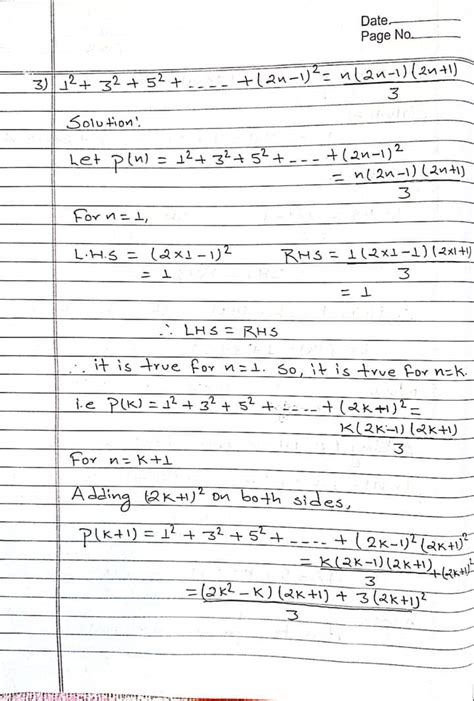 Date.
Page No.
3) 1² + 3² + 5² + .... + (2n-1)² = n(2n-1)(2n+1)
3
Solution:
Let P(n) = 1² + 3² + 5² + --- + (2n-1)²
= n(2n-1)(2n+1)
3
For n=1,
L.H.S = (2×1-1)² RHS = 1(2×1-1)(2×1+1)
3
= 1 = 1
∴ LHS = RHS
∴ it is true for n=1. So, it is true for n=k.
i.e P(k) = 1² + 3² + 5² + .... + (2k+1)² =
k(2k-1)(2k+1)
3
For n = k+1
Adding (2k+1)² on both sides,
P(k+1) = 1² + 3² + 5² + .... + (2k-1)² (2k+1)²
= k(2k-1)(2k+1) + (2k+1)²
3
= (2k² - k)(2k+1) + 3(2k+1)²
3